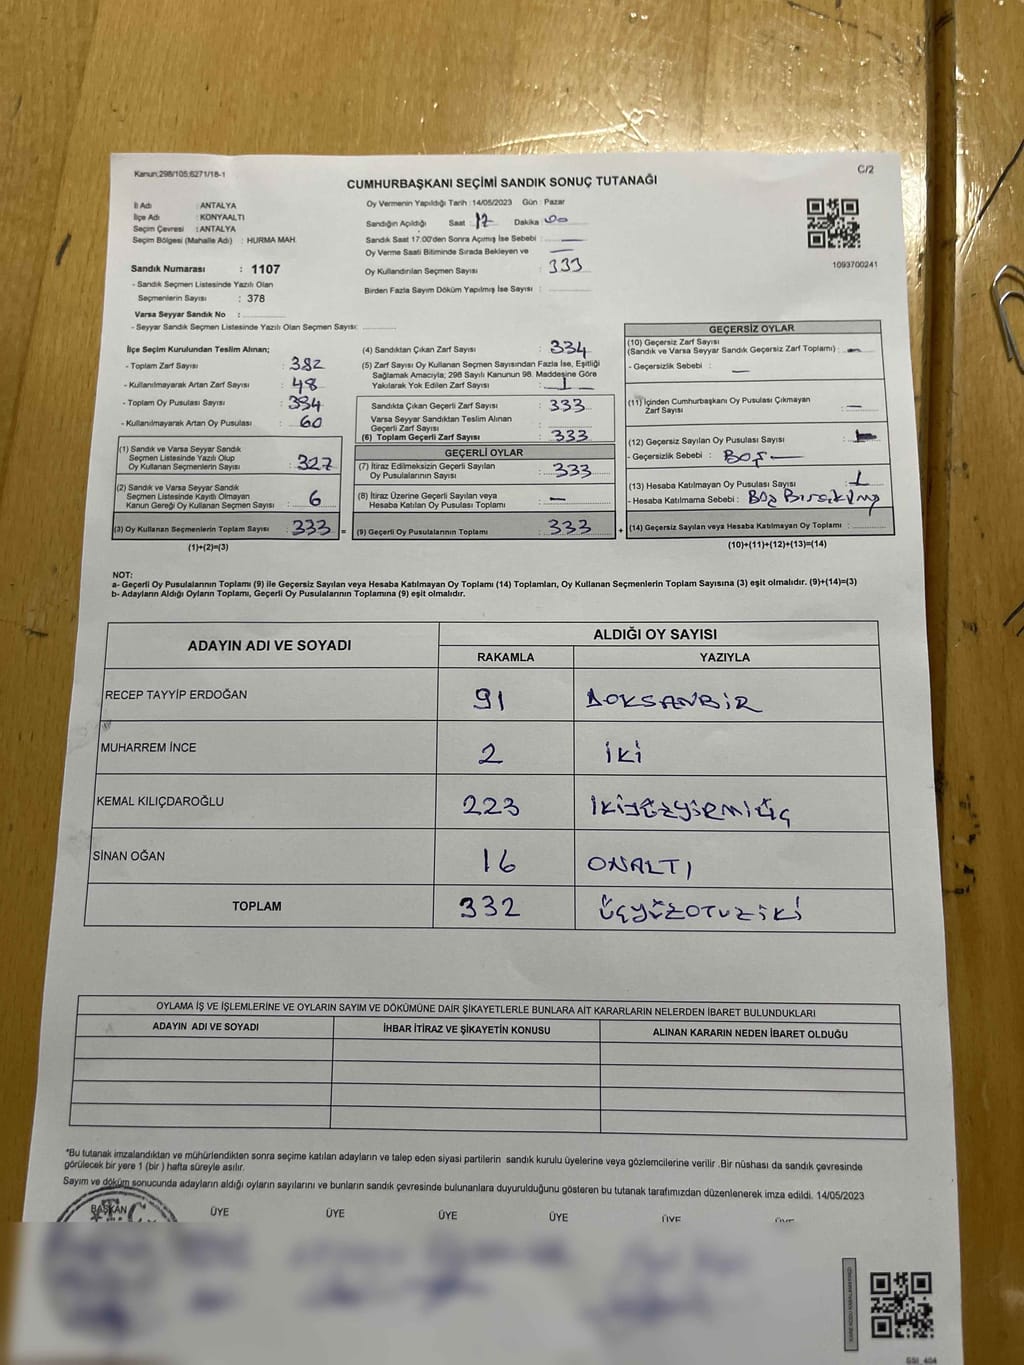 Kanun:298/105;6271/18-1
C/2
CUMHURBAŞKANI SEÇİMİ SANDIK SONUÇ TUTANAĞI
İl Adı : ANTALYA
İlçe Adı : KONYAALTI
Seçim Çevresi : ANTALYA
Seçim Bölgesi (Mahalle Adı) : HURMA MAH.
Sandık Numarası : 1107
- Sandık Seçmen Listesinde Yazılı Olan
Seçmenlerin Sayısı : 378
Varsa Seyyar Sandık No :
- Seyyar Sandık Seçmen Listesinde Yazılı Olan Seçmen Sayısı:
Oy Vermenin Yapıldığı Tarih : 14/05/2023 Gün : Pazar
Sandığın Açıldığı Saat 17 Dakika 00
Sandık Saat 17:00'den Sonra Açımış İse Sebebi : —
Oy Verme Saati Bitiminde Sırada Bekleyen ve —
Oy Kullandırılan Seçmen Sayısı : 333
Birden Fazla Sayım Döküm Yapılmış İse Sayısı :
1093700241
İlçe Seçim Kurulundan Teslim Alınan;
- Toplam Zarf Sayısı : 382
- Kullanılmayarak Artan Zarf Sayısı : 48
- Toplam Oy Pusulası Sayısı : 394
- Kullanılmayarak Artan Oy Pusulası : 60
(1) Sandık ve Varsa Seyyar Sandık
Seçmen Listesinde Yazılı Olup
Oy Kullanan Seçmenlerin Sayısı : 327
(2) Sandık ve Varsa Seyyar Sandık
Seçmen Listesinde Kayıtlı Olmayan
Kanun Gereği Oy Kullanan Seçmen Sayısı : 6
(3) Oy Kullanan Seçmenlerin Toplam Sayısı : 333 =
(1)+(2)=(3)
(4) Sandıktan Çıkan Zarf Sayısı : 334
(5) Zarf Sayısı Oy Kullanan Seçmen Sayısından Fazla İse, Eşitliği
Sağlamak Amacıyla; 298 Sayılı Kanunun 98. Maddesine Göre
Yakılarak Yok Edilen Zarf Sayısı : 1
Sandıkta Çıkan Geçerli Zarf Sayısı : 333
Varsa Seyyar Sandıktan Teslim Alınan
Geçerli Zarf Sayısı :
(6) Toplam Geçerli Zarf Sayısı : 333
GEÇERLİ OYLAR
(7) İtiraz Edilmeksizin Geçerli Sayılan
Oy Pusulalarının Sayısı : 333
(8) İtiraz Üzerine Geçerli Sayılan veya
Hesaba Katılan Oy Pusulası Toplamı : —
(9) Geçerli Oy Pusulalarının Toplamı : 333 +
GEÇERSİZ OYLAR
(10) Geçersiz Zarf Sayısı
(Sandık ve Varsa Seyyar Sandık Geçersiz Zarf Toplamı) : —
- Geçersizlik Sebebi : —
(11) İçinden Cumhurbaşkanı Oy Pusulası Çıkmayan
Zarf Sayısı : —
(12) Geçersiz Sayılan Oy Pusulası Sayısı :
- Geçersizlik Sebebi : BOŞ —
(13) Hesaba Katılmayan Oy Pusulası Sayısı : 1
- Hesaba Katılmama Sebebi : Boş
(14) Geçersiz Sayılan veya Hesaba Katılmayan Oy Toplamı :
(10)+(11)+(12)+(13)=(14)
NOT:
a- Geçerli Oy Pusulalarının Toplamı (9) ile Geçersiz Sayılan veya Hesaba Katılmayan Oy Toplamı (14) Toplamları, Oy Kullanan Seçmenlerin Toplam Sayısına (3) eşit olmalıdır. (9)+(14)=(3)
b- Adayların Aldığı Oyların Toplamı, Geçerli Oy Pusulalarının Toplamına (9) eşit olmalıdır.
ADAYIN ADI VE SOYADI
ALDIĞI OY SAYISI
RAKAMLA YAZIYLA
RECEP TAYYİP ERDOĞAN 91 DOKSANBİR
MUHARREM İNCE 2 İKİ
KEMAL KILIÇDAROĞLU 223 İKİYÜZYİRMİÜÇ
SİNAN OĞAN 16 ONALTI
TOPLAM 332 ÜÇYÜZOTUZİKİ
OYLAMA İŞ VE İŞLEMLERİNE VE OYLARIN SAYIM VE DÖKÜMÜNE DAİR ŞİKAYETLERLE BUNLARA AİT KARARLARIN NELERDEN İBARET BULUNDUKLARI
ADAYIN ADI VE SOYADI İHBAR İTİRAZ VE ŞİKAYETİN KONUSU ALINAN KARARIN NEDEN İBARET OLDUĞU
*Bu tutanak imzalandıktan ve mühürlendikten sonra seçime katılan adayların ve talep eden siyasi partilerin sandık kurulu üyelerine veya gözlemcilerine verilir .Bir nüshası da sandık çevresinde
görülecek bir yere 1 (bir ) hafta süreyle asılır.
Sayım ve döküm sonucunda adayların aldığı oyların sayılarını ve bunların sandık çevresinde bulunanlara duyurulduğunu gösteren bu tutanak tarafımızdan düzenlenerek imza edildi. 14/05/2023
BAŞKAN ÜYE ÜYE ÜYE ÜYE ÜYE
T.C.